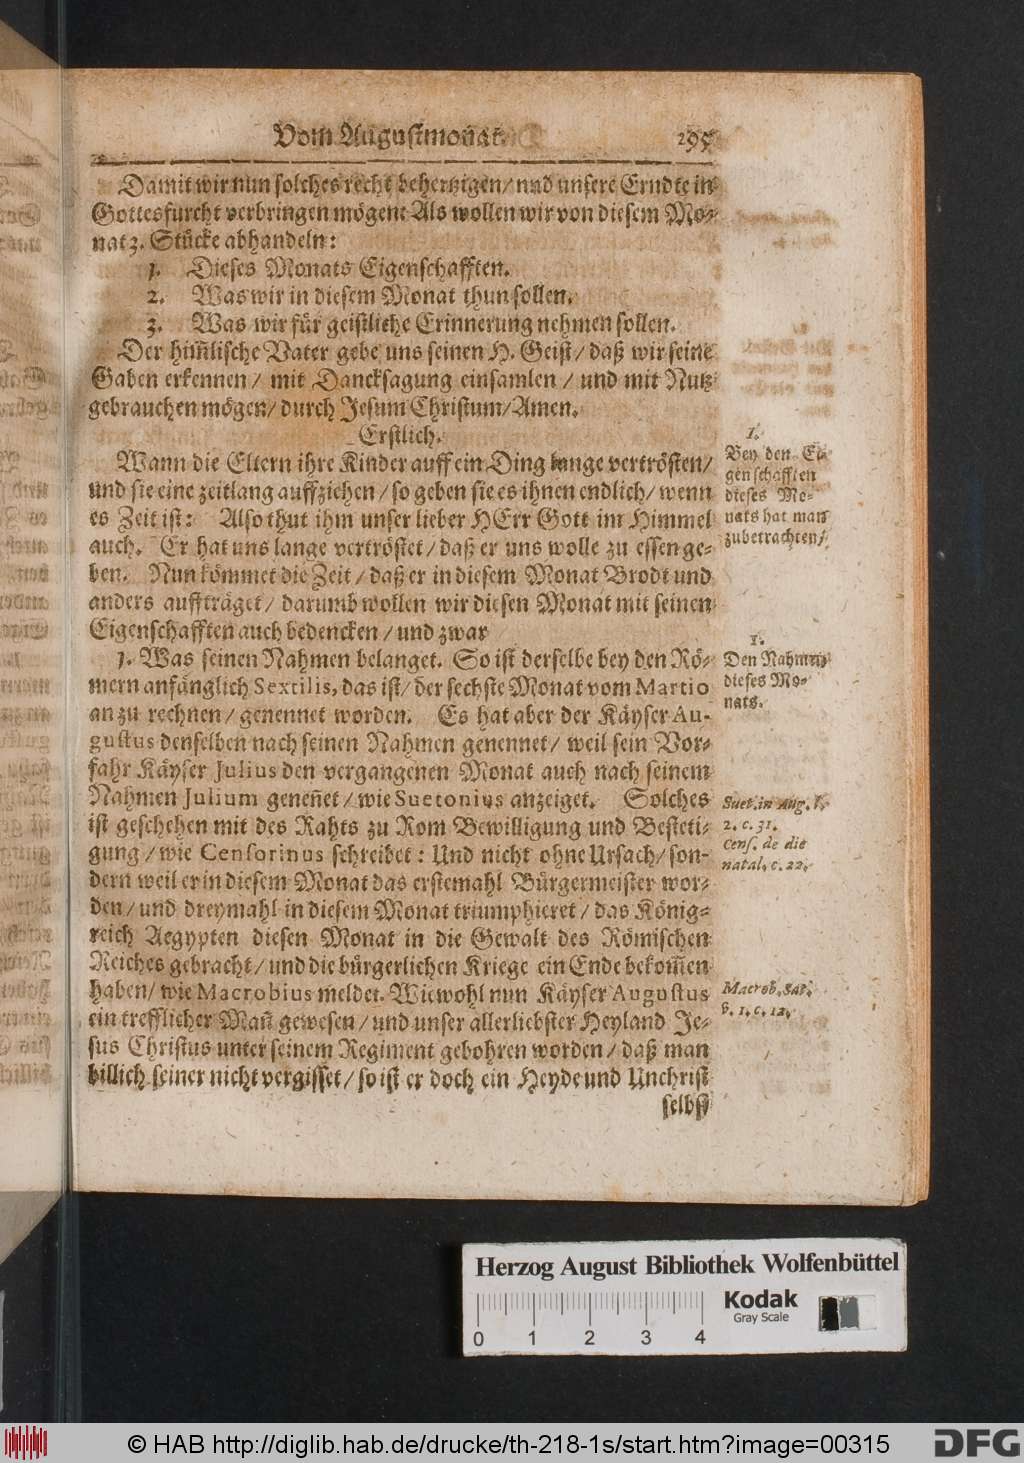 Vom Augustmonat. 295
Damit wir nun solches recht behertzigen/ und unsere Erndte in
Gottesfurcht verbringen mögen: Als wollen wir von diesem Mo-
nat 3. Stücke abhandeln:
1. Dieses Monats Eigenschafften.
2. Was wir in diesem Monat thun sollen.
3. Was wir für geistliche Erinnerung nehmen sollen.
Der him̃lische Vater gebe uns seinen H. Geist/ daß wir seine
Gaben erkennen/ mit Dancksagung einsamlen/ und mit Nutz
gebrauchen mögen/ durch Jesum Christum/ Amen.
Erstlich.
Wann die Eltern ihre Kinder auff ein Ding lange vertrösten/
und sie eine zeitlang auffziehen/ so geben sie es ihnen endlich/ wenn
es Zeit ist: Also thut ihm unser lieber HErr Gott im Himmel
auch. Er hat uns lange vertröstet/ daß er uns wolle zu essen ge-
ben. Nun kömmet die Zeit/ daß er in diesem Monat Brodt und
anders aufträget/ darumb wollen wir diesen Monat mit seinen
Eigenschafften auch bedencken/ und zwar
1. Was seinen Nahmen belanget. So ist derselbe bey den Rö-
mern anfänglich Sextilis, das ist/ der sechste Monat vom Martio
an zu rechnen/ genennet worden. Es hat aber der Käyser Au-
gustus denselben nach seinen Nahmen genennet/ weil sein Vor-
fahr Käyser Julius den vergangenen Monat auch nach seinem
Nahmen Julium geneñet/ wie Suetonius anzeiget. Solches
ist geschehen mit des Rahts zu Rom Bewilligung und Besteti-
gung/ wie Censorinus schreibet: Und nicht ohne Ursach/ son-
dern weil er in diesem Monat das erstemahl Bürgermeister wor-
den/ und dreymahl in diesem Monat triumphieret/ das König-
reich Aegypten diesen Monat in die Gewalt des Römischen
Reiches gebracht/ und die bürgerlichen Kriege ein Ende bekom̃en
haben/ wie Macrobius meldet. Wiewohl nun Käyser Augustus
ein trefflicher Mañ gewesen/ und unser allerliebster Heyland Je-
sus Christus unter seinem Regiment gebohren worden/ daß man
billich seiner nicht vergisset/ so ist er doch ein Heyde und Unchrist
selbst
1.
Bey den Ei-
genschafften
dieses Mo-
nats hat man
zubetrachten/
1.
Den Nahmen
dieses Mo-
nats.
Suet. in Aug. l.
2. c. 31.
Cens. de die
natal. c. 22.
Macrob. Sat.
l. 1. c. 12.
Herzog August Bibliothek Wolfenbüttel
0 1 2 3 4
Kodak
Gray Scale
© HAB http://diglib.hab.de/drucke/th-218-1s/start.htm?image=00315
DFG